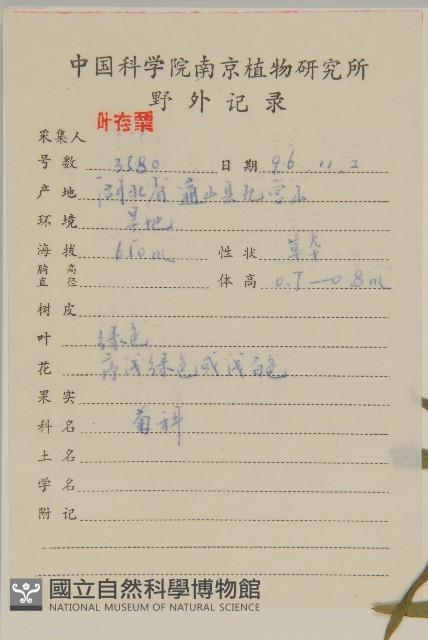 中国科学院南京植物研究所
野外记录
采集人 叶存粟
号数 3580 日期 96.11.2
产地 湖北省通山县九宫山
环境 旱地
海拔 650m 性状 草
胸高直径 体高 0.7—0.8m
树皮
叶 绿色
花 序浅绿色或浅白色
果实
科名 菊科
土名
学名
附记
國立自然科學博物館
NATIONAL MUSEUM OF NATURAL SCIENCE